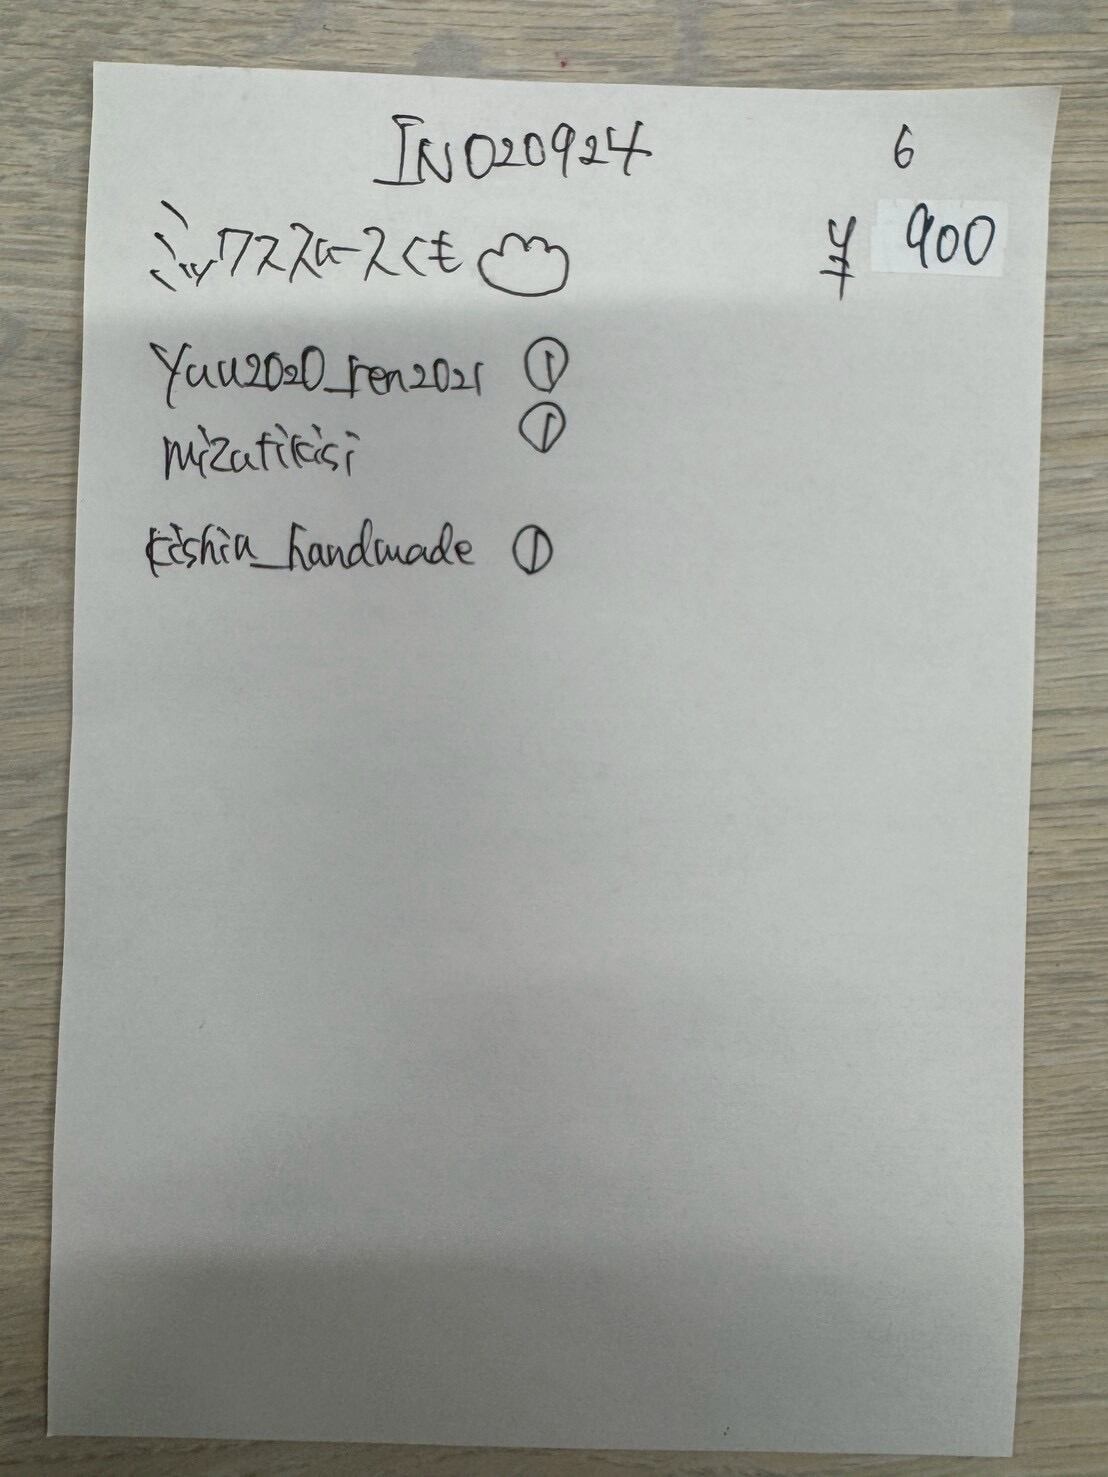 INO20924 6
ミックススムースくも ¥ 900
yuu2020_ren2021 ①
mizutikisi ①
kishia_handmade ①